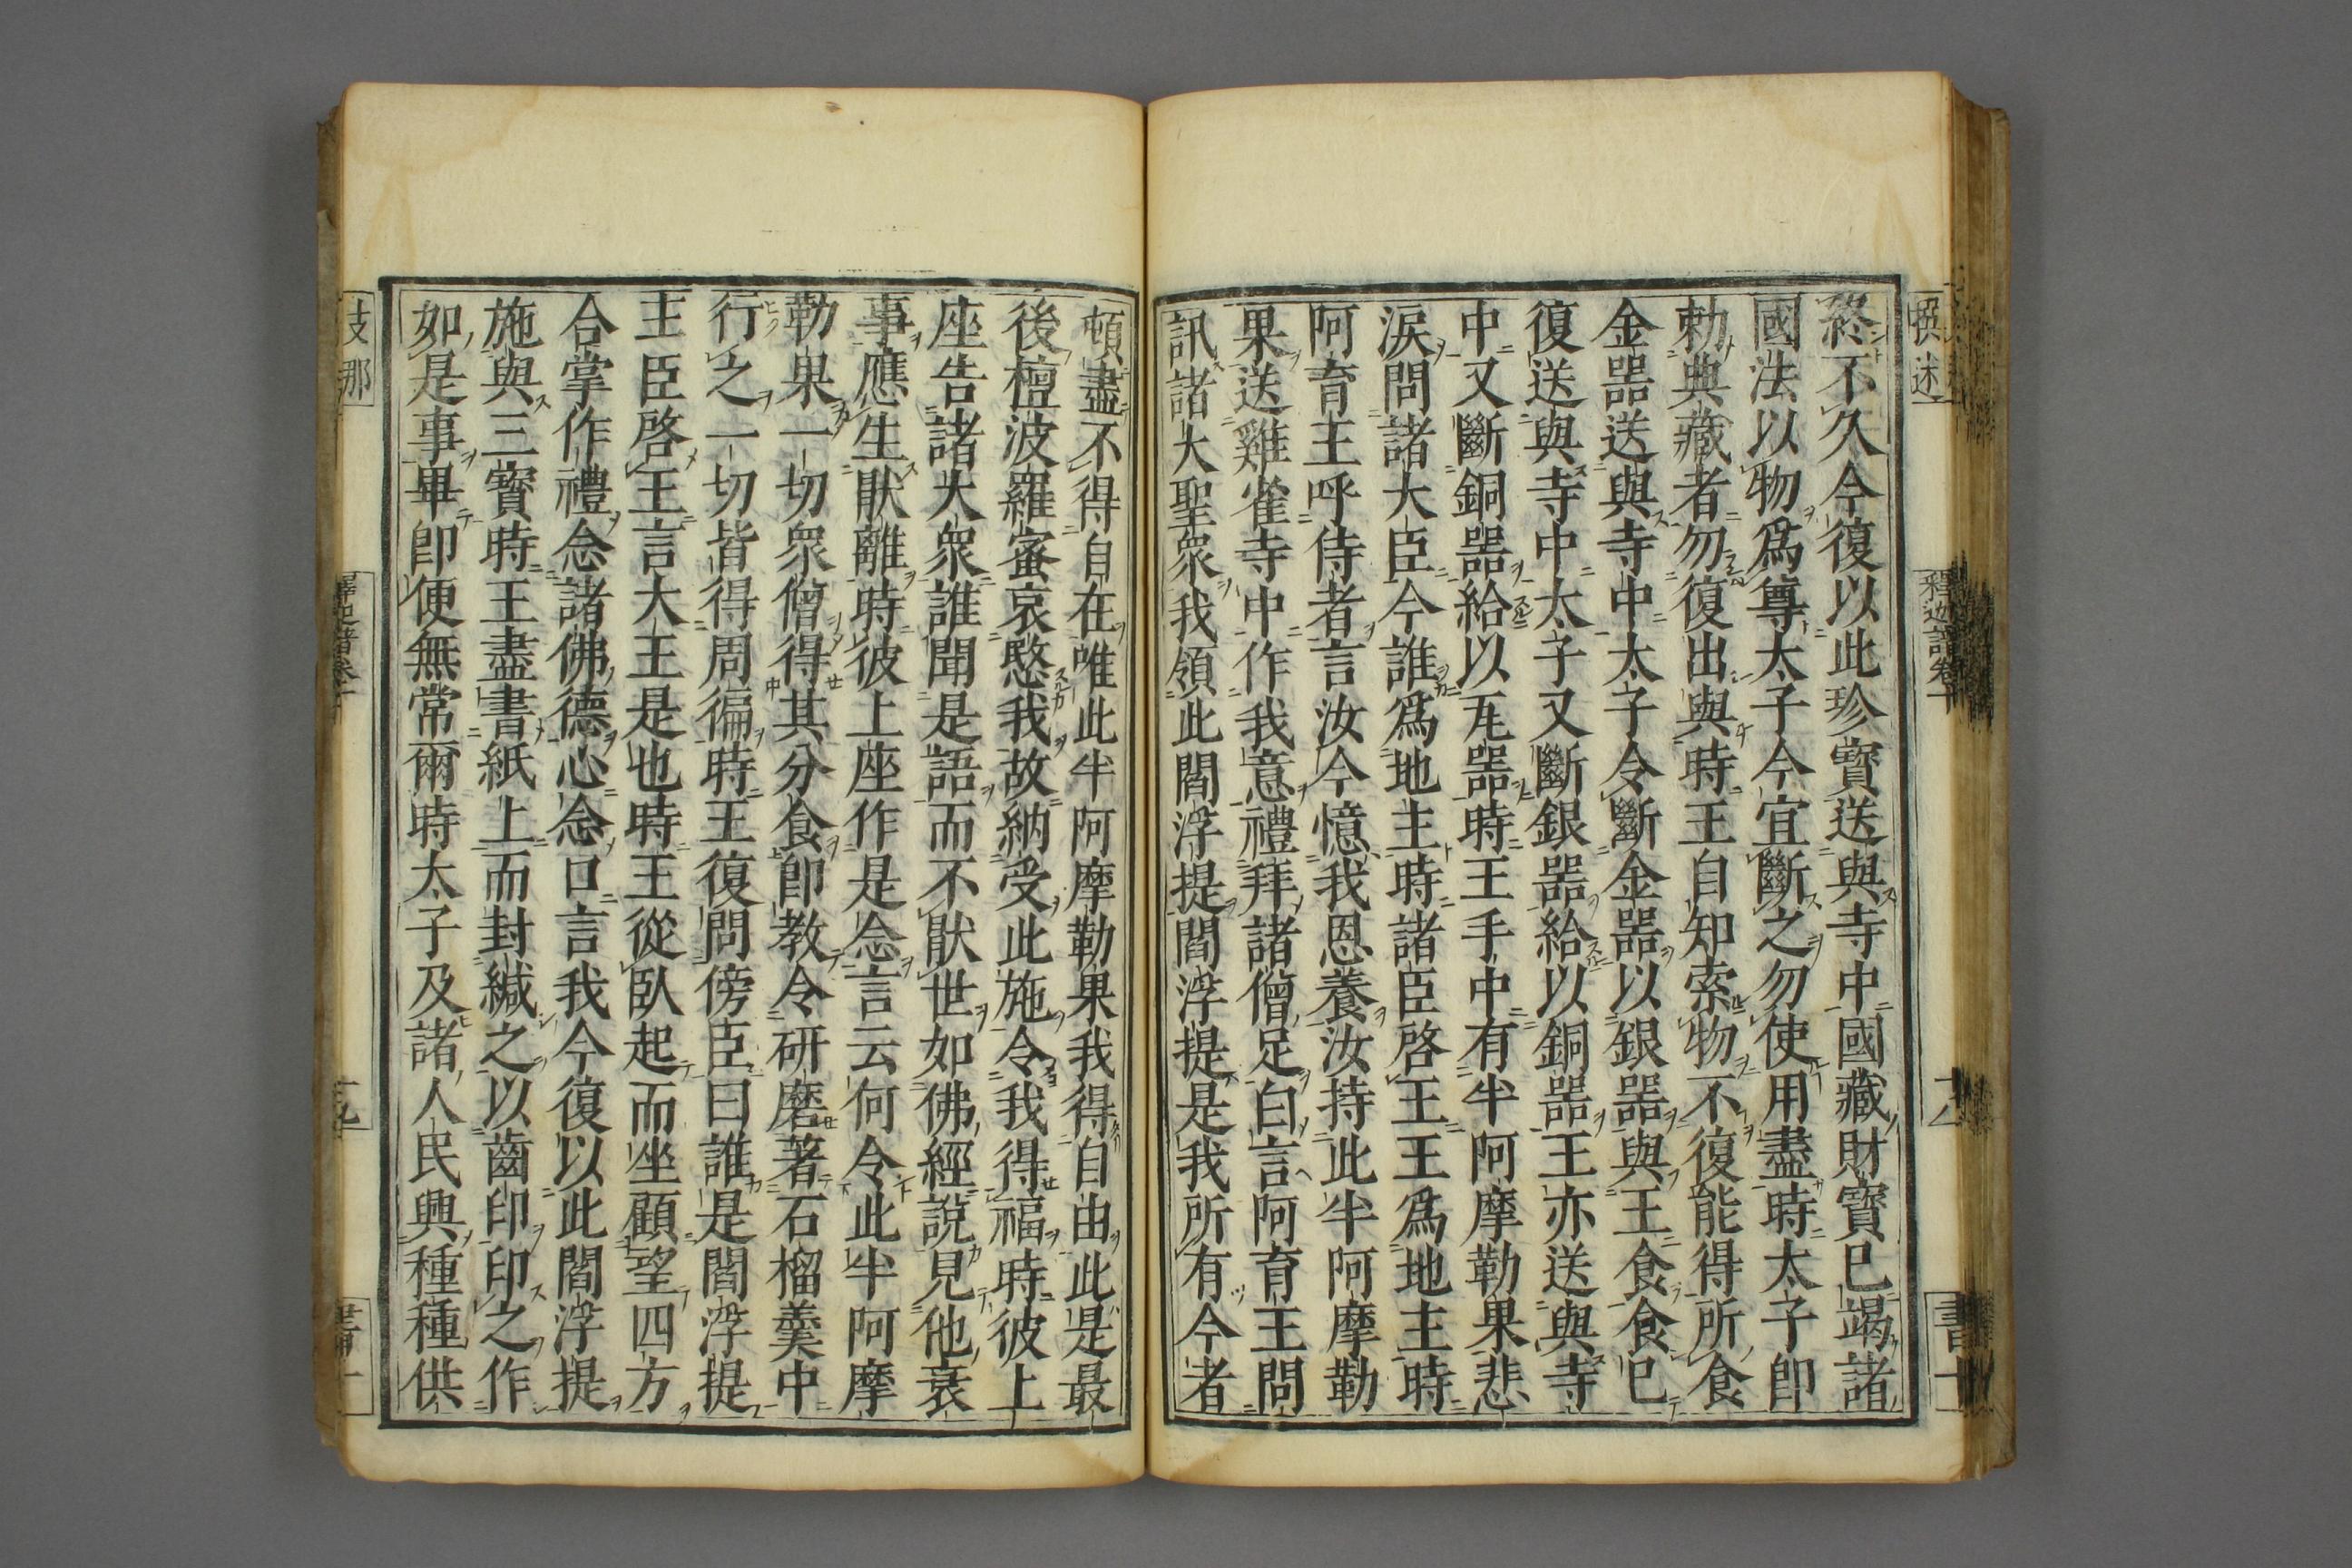 終不久今復以此珍寶送與寺中國藏財寶已竭諸
國法以物爲尊太子今宜斷之勿使用盡時太子即
勅典藏者勿復出與時王自知索物不復能得所食
金器送與寺中太子令斷金器以銀器與王食食已
復送與寺中太子又斷銀器給以銅器王亦送與寺
中又斷銅器給以瓦器時王手中有半阿摩勒果悲
淚問諸大臣今誰爲地主時諸臣啓王王爲地主時
阿育王呼侍者言汝今憶我恩養汝持此半阿摩勒
果送雞雀寺中作我意禮拜諸僧足白言阿育王問
訊諸大聖衆我領此閻浮提閻浮提是我所有今者
頓盡不得自在唯此半阿摩勒果我得自由此是最
後檀波羅蜜哀愍我故納受此施令我得福時彼上
座告諸大衆誰聞是語而不猒世如佛經說見他衰
事應生猒離時彼上座作是念言云何令此半阿摩
勒果一切衆僧得其分食即教令研磨著石榴羹中
行之一切皆得周徧時王復問傍臣曰誰是閻浮提
王臣啓王言大王是也時王從臥起而坐顧望四方
合掌作禮念諸佛德心念口言我今復以此閻浮提
施與三寶時王盡書紙上而封緘之以齒印印之作
如是事畢即便無常爾時太子及諸人民興種種供